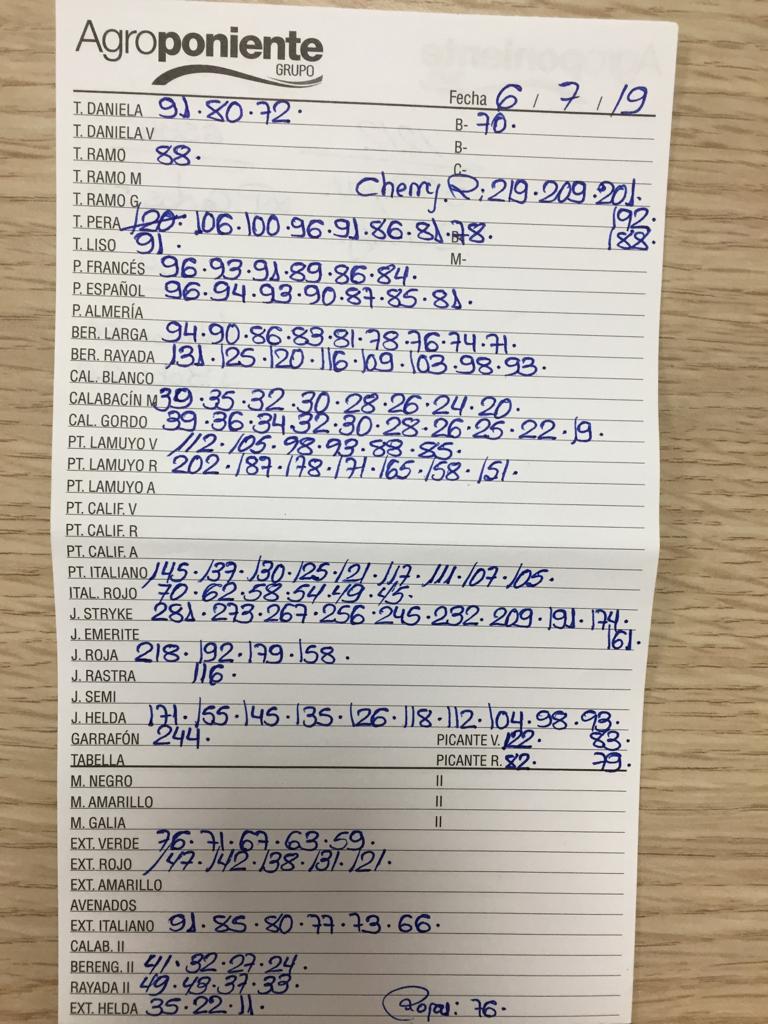 Agroponiente
GRUPO
Fecha 6 / 7 / 19
T. DANIELA 91.80.72. B- 70.
T. DANIELA V B-
T. RAMO 88. C-
T. RAMO M Cherry R: 219.209.201.
T. RAMO G 192.
T. PERA 120. 106.100.96.91.86.81.78. 188.
T. LISO 91. M-
P. FRANCÉS 96.93.91.89.86.84.
P. ESPAÑOL 96.94.93.90.87.85.81.
P. ALMERÍA
BER. LARGA 94.90.86.83.81.78.76.74.71.
BER. RAYADA 131.125.120.116.109.103.98.93.
CAL. BLANCO
CALABACÍN M 39.35.32.30.28.26.24.20.
CAL. GORDO 39.36.34.32.30.28.26.25.22.19.
PT. LAMUYO V 112.105.98.93.88.85.
PT. LAMUYO R 202.187.178.171.165.158.151.
PT. LAMUYO A
PT. CALIF. V
PT. CALIF. R
PT. CALIF. A
PT. ITALIANO 145.137.130.125.121.117.111.107.105.
ITAL. ROJO 70.62.58.54.49.45.
J. STRYKE 281.273.267.256.245.232.209.191.174.
J. EMERITE 161.
J. ROJA 218.192.179.158.
J. RASTRA 116.
J. SEMI
J. HELDA 171.155.145.135.126.118.112.104.98.93.
GARRAFÓN 244. PICANTE V. 122. 83.
TABELLA PICANTE R. 82. 79.
M. NEGRO II
M. AMARILLO II
M. GALIA II
EXT. VERDE 76.71.67.63.59.
EXT. ROJO 147.142.138.131.121.
EXT. AMARILLO
AVENADOS
EXT. ITALIANO 91.85.80.77.73.66.
CALAB. II
BERENG. II 41.32.27.24.
RAYADA II 49.43.37.33.
EXT. HELDA 35.22.11. 76.